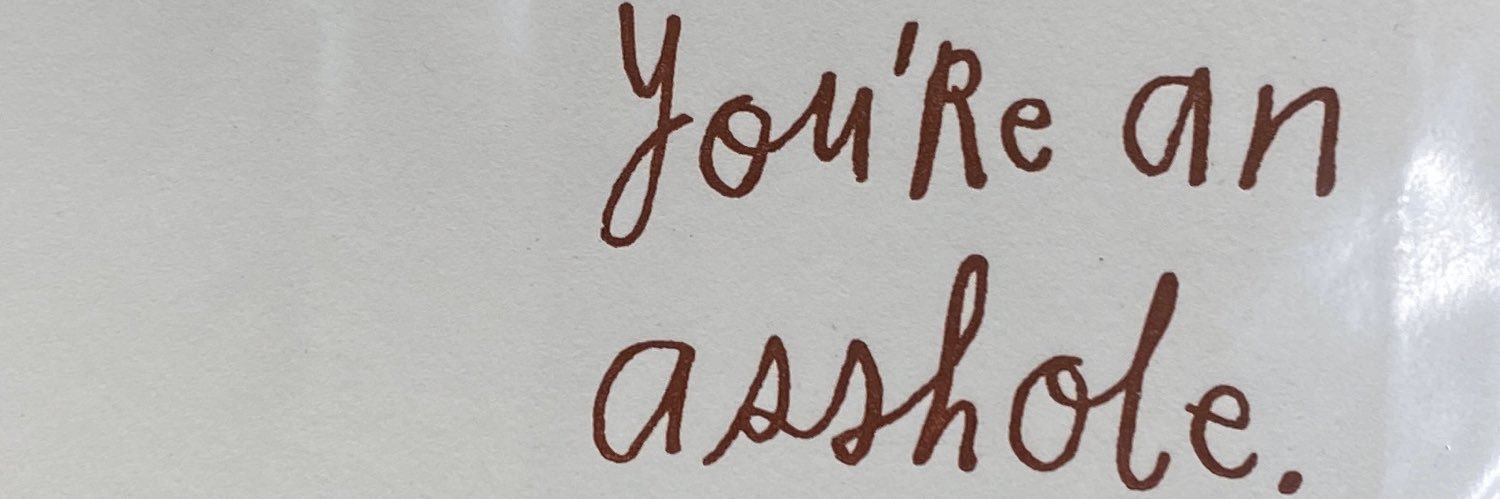 You'Re an
asshole.